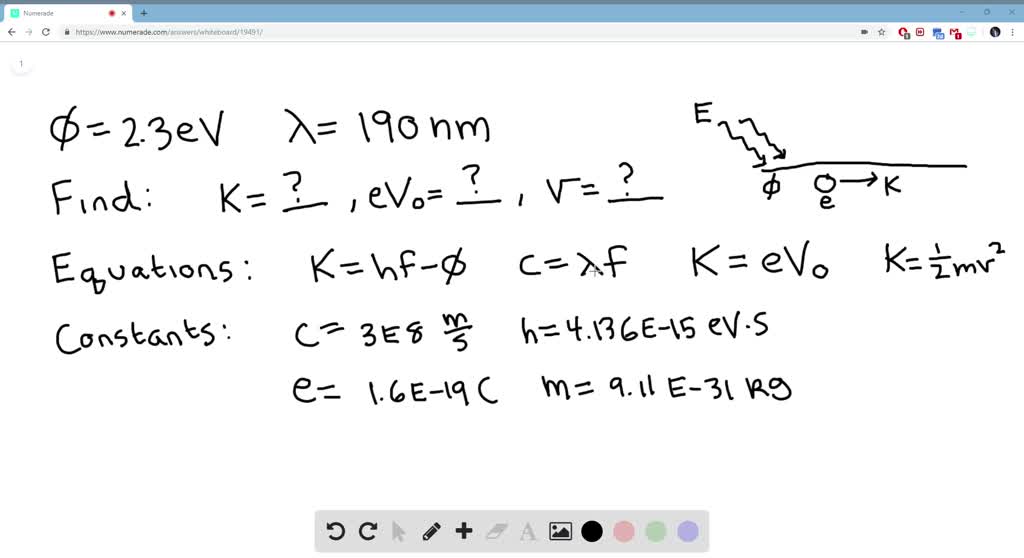 Numerade
https://www.numerade.com/answers/whiteboard/19491/
1
ϕ = 2.3eV λ = 190 nm
E
ϕ e K
Find: K = ? , eV₀ = ? , v = ?
Equations: K = hf - ϕ c = λf K = eV₀ K = 1/2 mv²
Constants: c = 3E8 m/s h = 4.136E-15 eV·s
e = 1.6E-19 C m = 9.11 E-31 kg
A